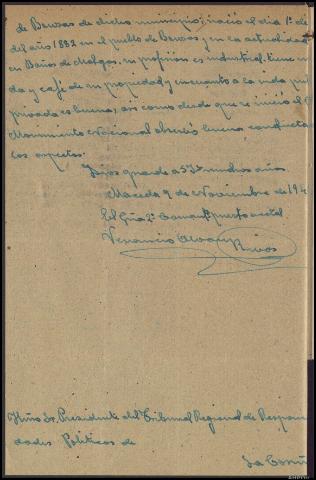 de Benzas de dicho municipio; nació el dia 1º de
del año 1882 en el pueblo de Benzas y en la actualidad
en Baños de Molgas, su profesion es industrial, tiene
da y café de su propiedad y en cuanto a la vida pu
privada es buena, asi como desde que se inició el
Movimiento Nacional observó buena conducta
los aspectos.
Dios guarde a S. Iª muchos años.
Maceda 9 de Noviembre de 194
El Gua 2º Comanᵗᵉ puesto acctal
Venancio Alvarez
Rivos
Ilmo Sr. Presidente del Tribunal Regional de Respon
dades Politicas de
La Coruñ